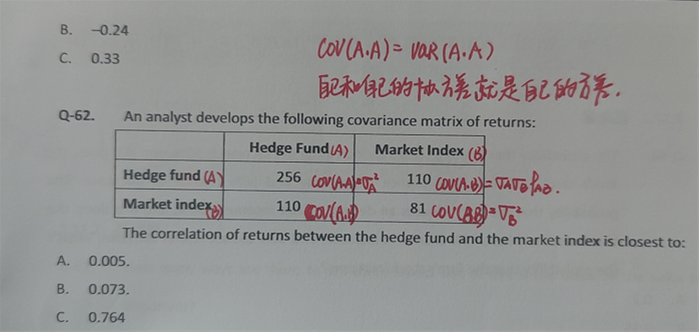 B. −0.24
COV(A.A) = VAR(A.A)
C. 0.33
自己和自己的协方差就是自己的方差.
Q-62. An analyst develops the following covariance matrix of returns:
Hedge Fund(A) Market Index (B)
Hedge fund (A) 256 COV(A.A)=σA² 110 COV(A.B)=σAσBρAB.
Market index(B) 110 COV(A.B) 81 COV(BB)=σB²
The correlation of returns between the hedge fund and the market index is closest to:
A. 0.005.
B. 0.073.
C. 0.764